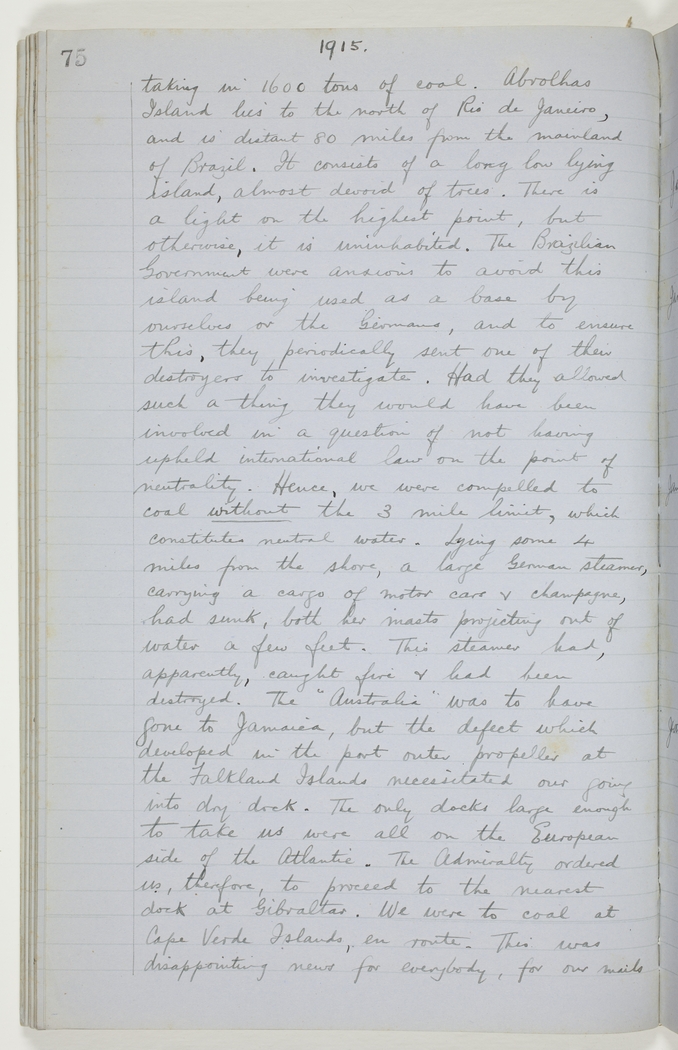 75
1915.
taking in 1600 tons of coal. Abrolhas
Island lies to the north of Rio de Janeiro,
and is distant 80 miles from the mainland
of Brazil. It consists of a long low lying
island, almost devoid of trees. There is
a light on the highest point, but
otherwise, it is uninhabited. The Brazilian
Government were anxious to avoid this
island being used as a base by
ourselves or the Germans, and to ensure
this, they periodically sent one of their
destroyers to investigate. Had they allowed
such a thing they would have been
involved in a question of not having
upheld international law on the point of
neutrality. Hence, we were compelled to
coal without the 3 mile limit, which
constitutes neutral water. Lying some 4
miles from the shore, a large German steamer,
carrying a cargo of motor cars & champagne,
had sunk, both her masts projecting out of
water a few feet. This steamer had,
apparently, caught fire & had been
destroyed. The "Australia" was to have
gone to Jamaica, but the defect which
developed in the port outer propeller at
the Falkland Islands necessitated our going
into dry dock. The only docks large enough
to take us were all on the European
side of the Atlantic. The Admiralty ordered
us, therefore, to proceed to the nearest
dock at Gibraltar. We were to coal at
Cape Verde Islands, en route. This was
disappointing news for everybody, for our mails